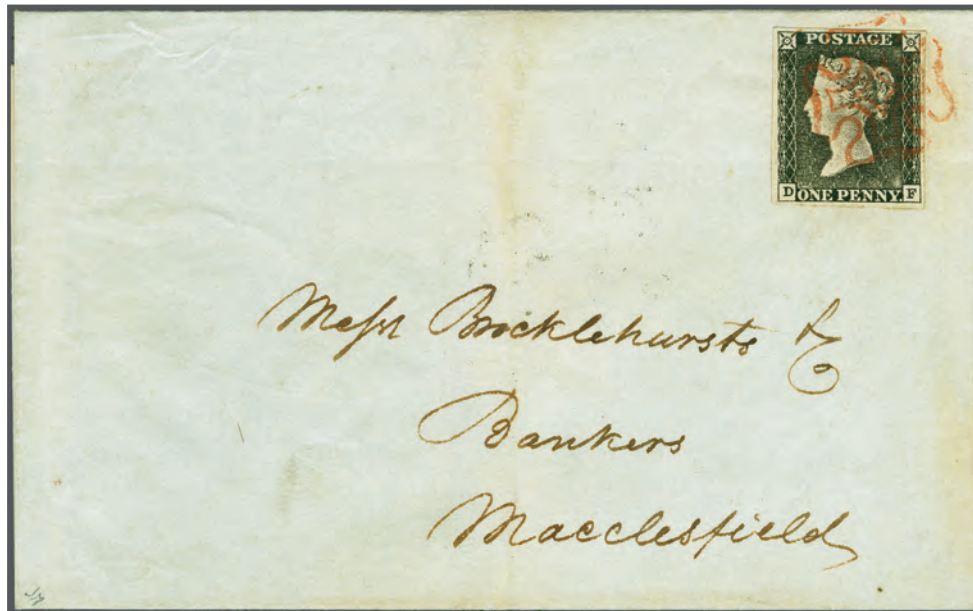 POSTAGE
D ONE PENNY. F
Messrs Brocklehursts & Co
Bankers
Macclesfield